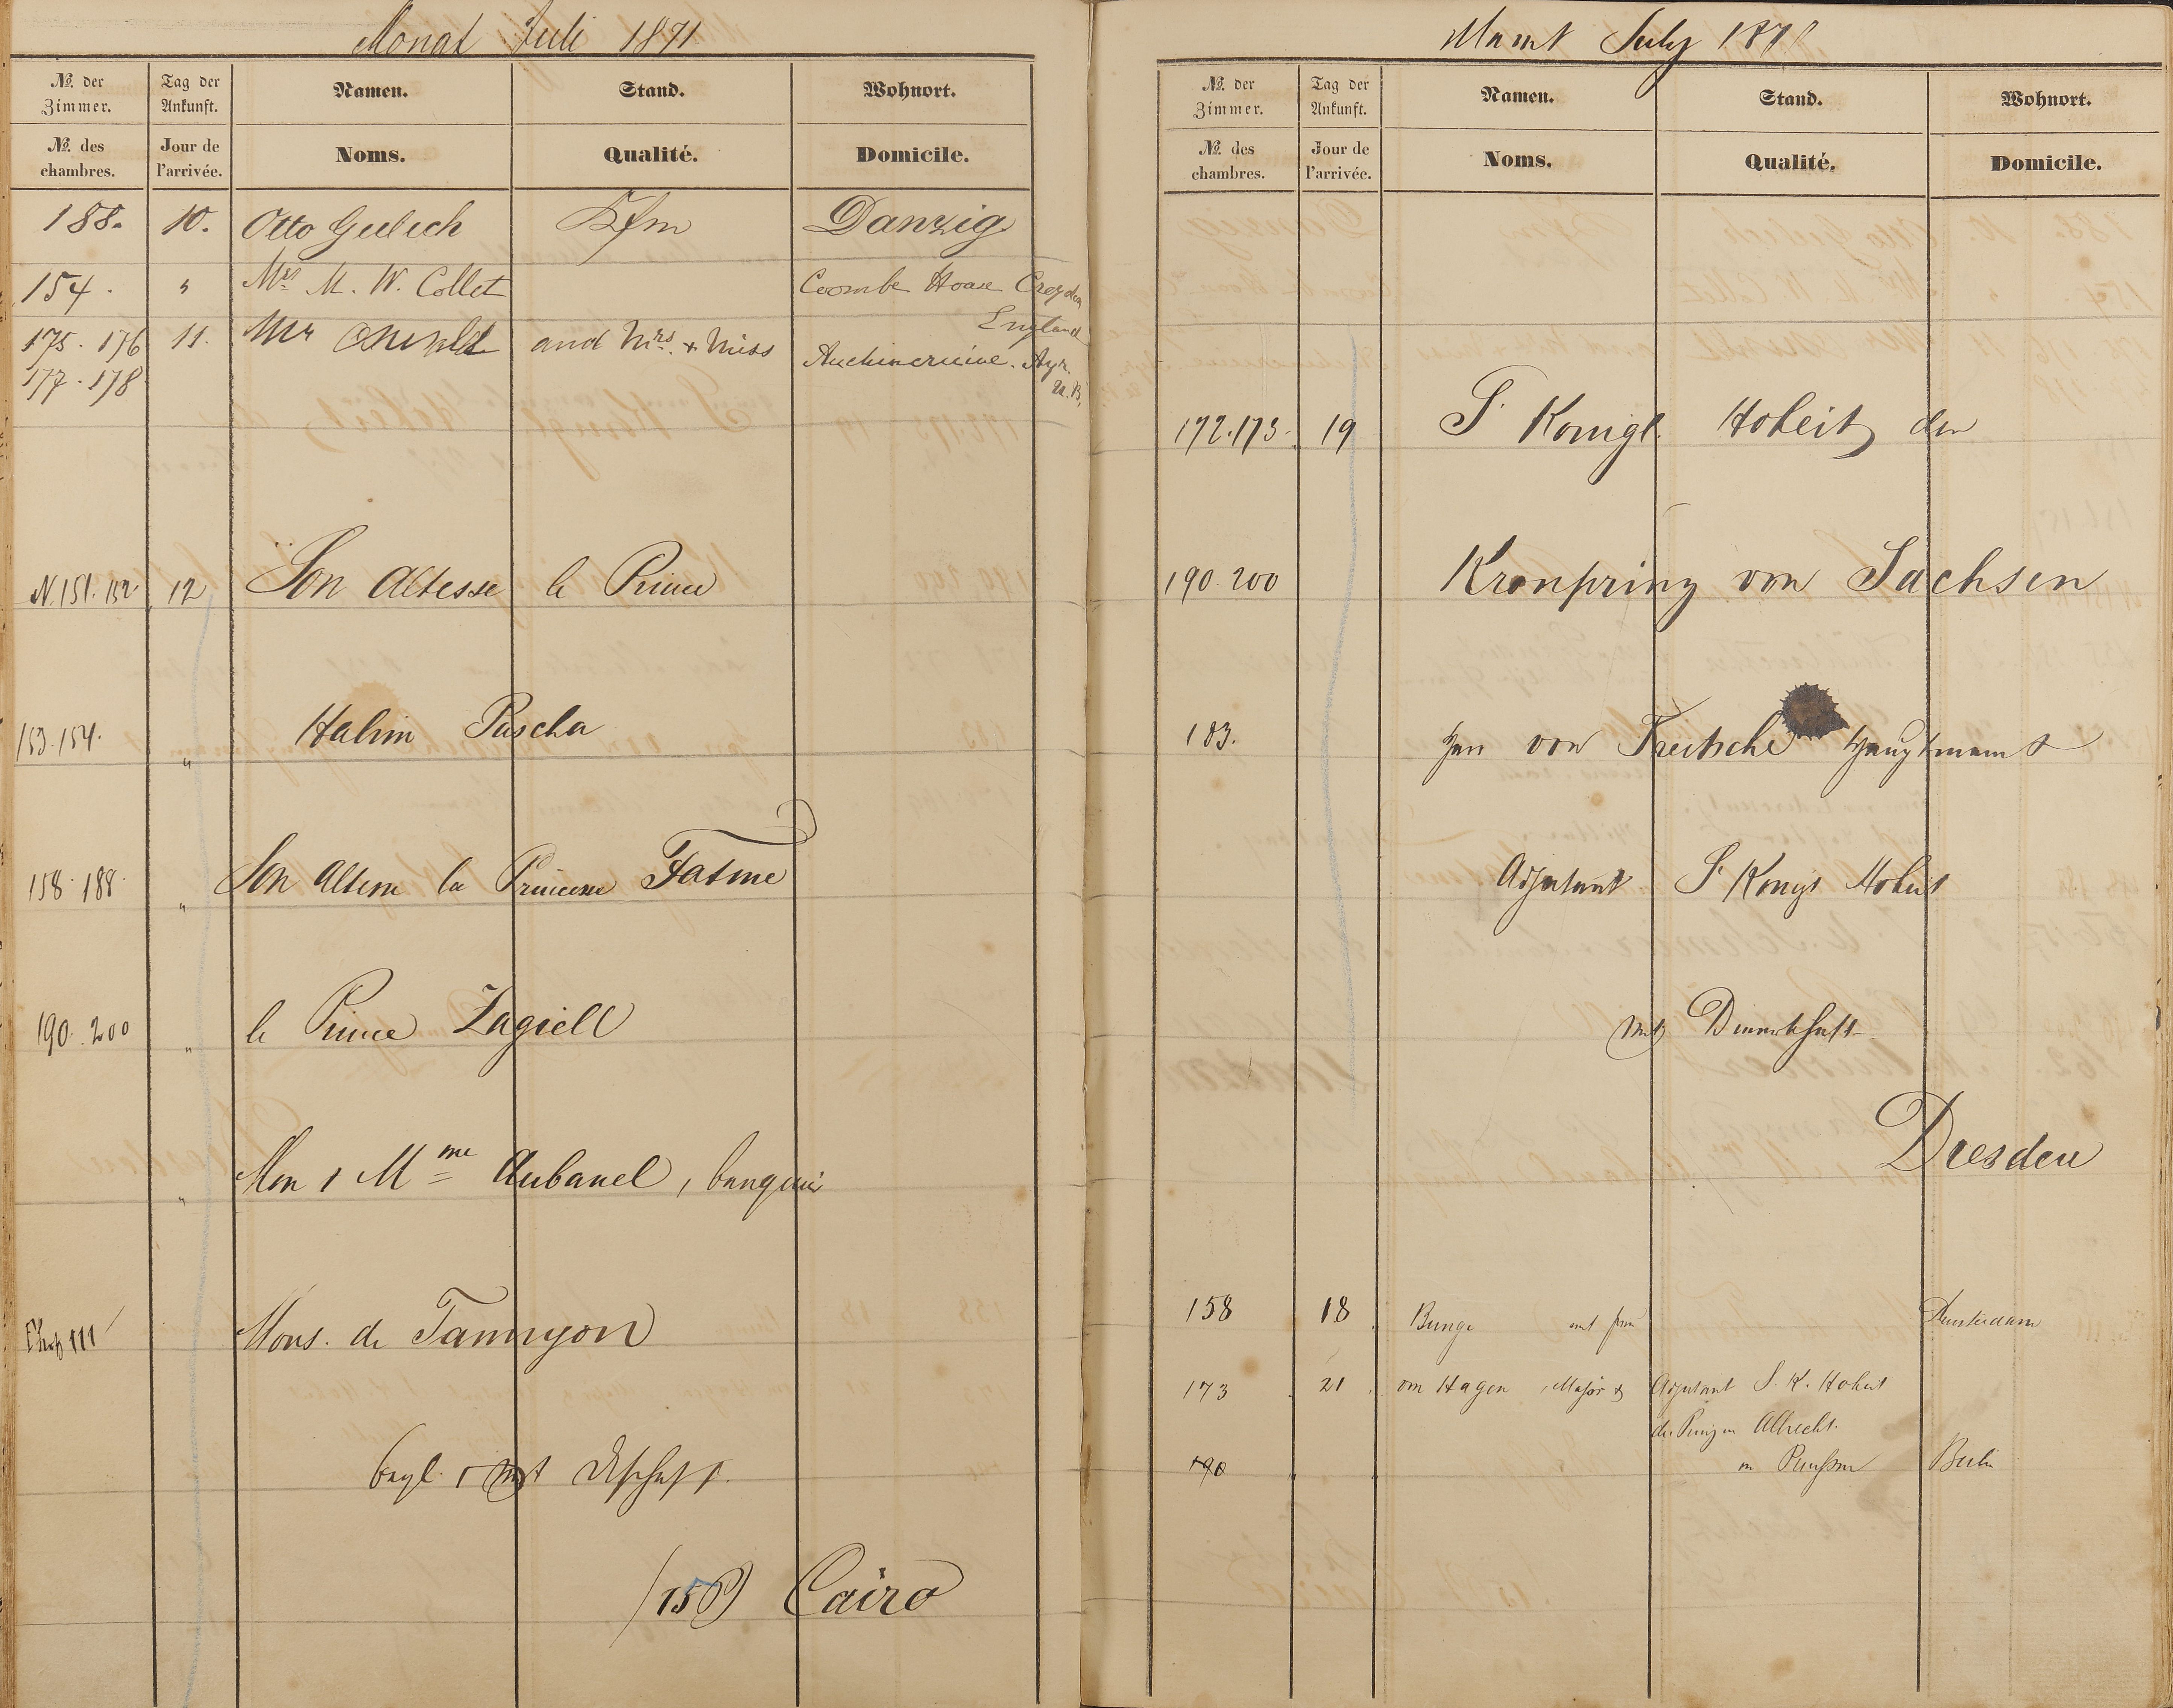 Monat Juli 1871
No. der Zimmer. Tag der Ankunft. Namen. Stand. Wohnort.
No. des chambres. Jour de l'arrivée. Noms. Qualité. Domicile.
188. 10. Otto Gulich Kfm Danzig
154. " Mrs M. W. Collet Coombe House Croydon
England
175. 176 11. Mr Oswald and Mrs. & Miss Auchincruive. Ayr.
177. 178 N.B.
N. 151. 152. 12 Son Altesse le Prince
153. 154. " Halim Pascha
158. 188. " Son Altesse la Princesse Fatme
190. 200 " le Prince Zagiell
" Mon & Mme Aubanel, banquier
111 Mons. de Tannyon
(15 P) Cairo
Monat July 1871
No. der Zimmer. Tag der Ankunft. Namen. Stand. Wohnort.
No. des chambres. Jour de l'arrivée. Noms. Qualité. Domicile.
172. 173. 19 S. Königl. Hoheit der
190. 200 Kronprinz von Sachsen
183. Herr von Treitschke Hauptmann &
Adjutant Sr Königl Hoheit
mit Dienerschaft
Dresden
158 18 Bunge mit frau Amsterdam
173 21 von Hagen, Major & Adjutant S. K. Hoheit
des Prinzen Albrecht.
190 " " v Preussen Berlin